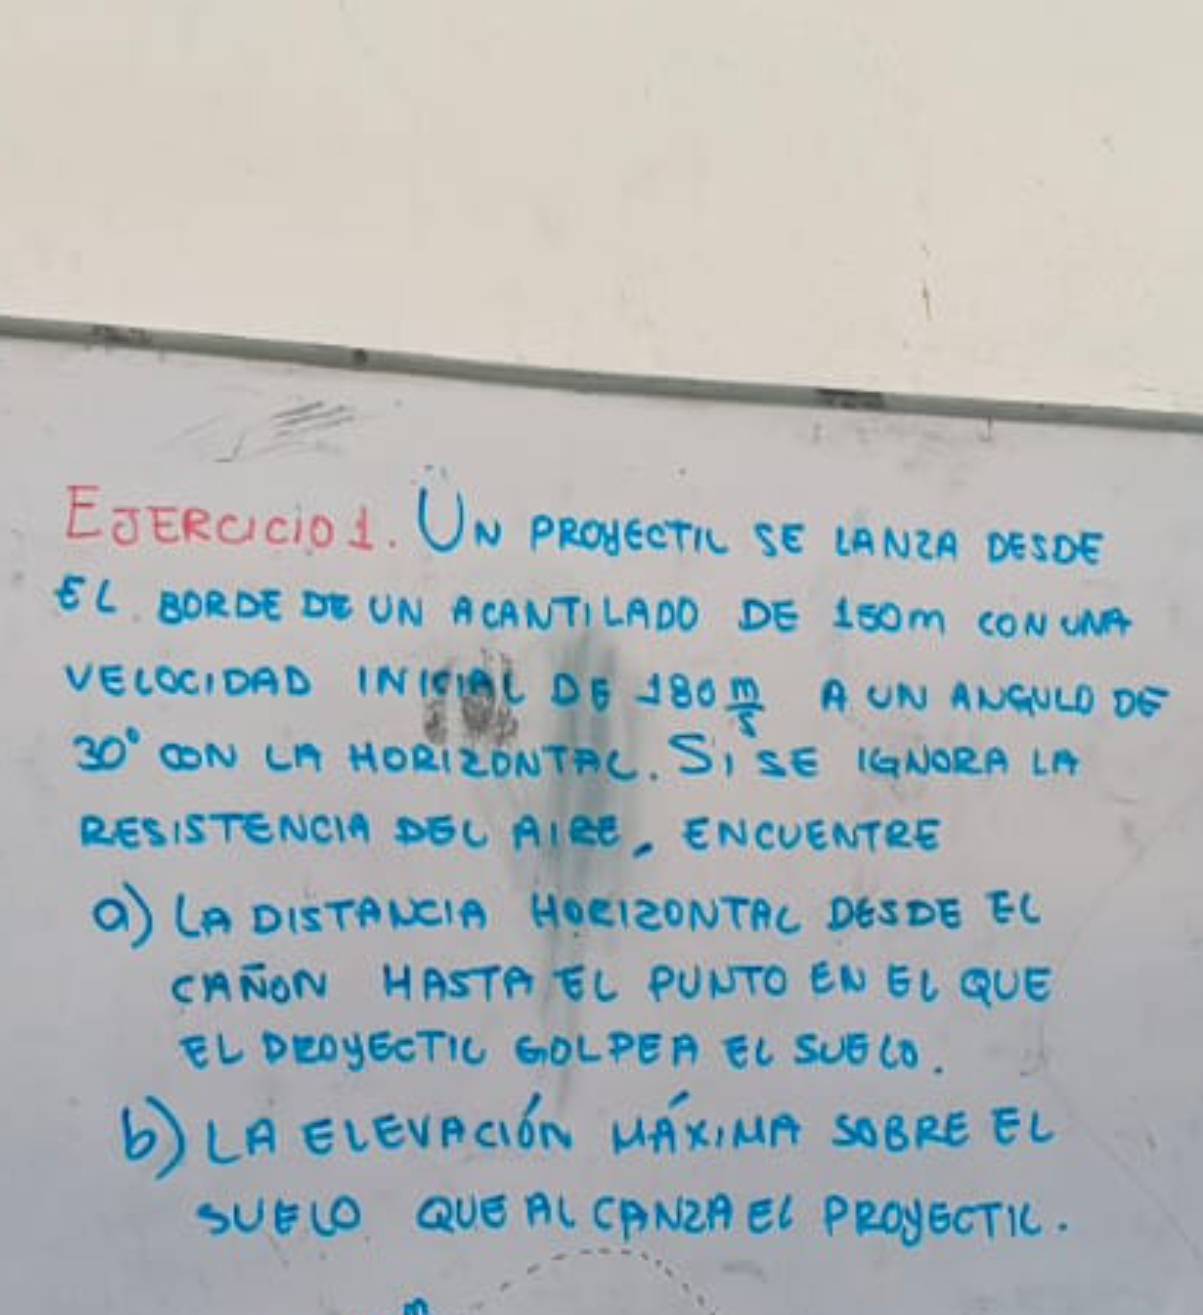 EJERCICIO 1. UN PROYECTIL SE LANZA DESDE
EL BORDE DE UN ACANTILADO DE 150m CON UNA
VELOCIDAD INICIAL DE 180 m/s A UN ANGULO DE
30° CON LA HORIZONTAL. SI SE IGNORA LA
RESISTENCIA DEL AIRE, ENCUENTRE
a) LA DISTANCIA HORIZONTAL DESDE EL
CAÑON HASTA EL PUNTO EN EL QUE
EL PROYECTIL GOLPEA EL SUELO.
b) LA ELEVACIÓN MÁXIMA SOBRE EL
SUELO QUE ALCANZA EL PROYECTIL.